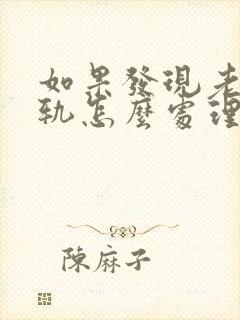 如果發現老
軌怎麼處理
陳麻子